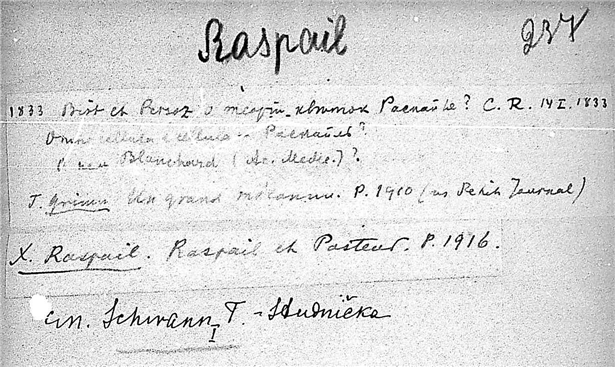 Raspail 237
1833 Biot et Persoz о теории клеток Распайля? C. R. 14 I. 1833
Omnis cellula e cellula - Распайль?
Blanchard (Ac. Medic.)?
J. Grimm Un grand méconnu. P. 1910 (us Petit Journal)
X. Raspail. Raspail et Pasteur. P. 1916.
см. Schwann, T. - Studnička
I